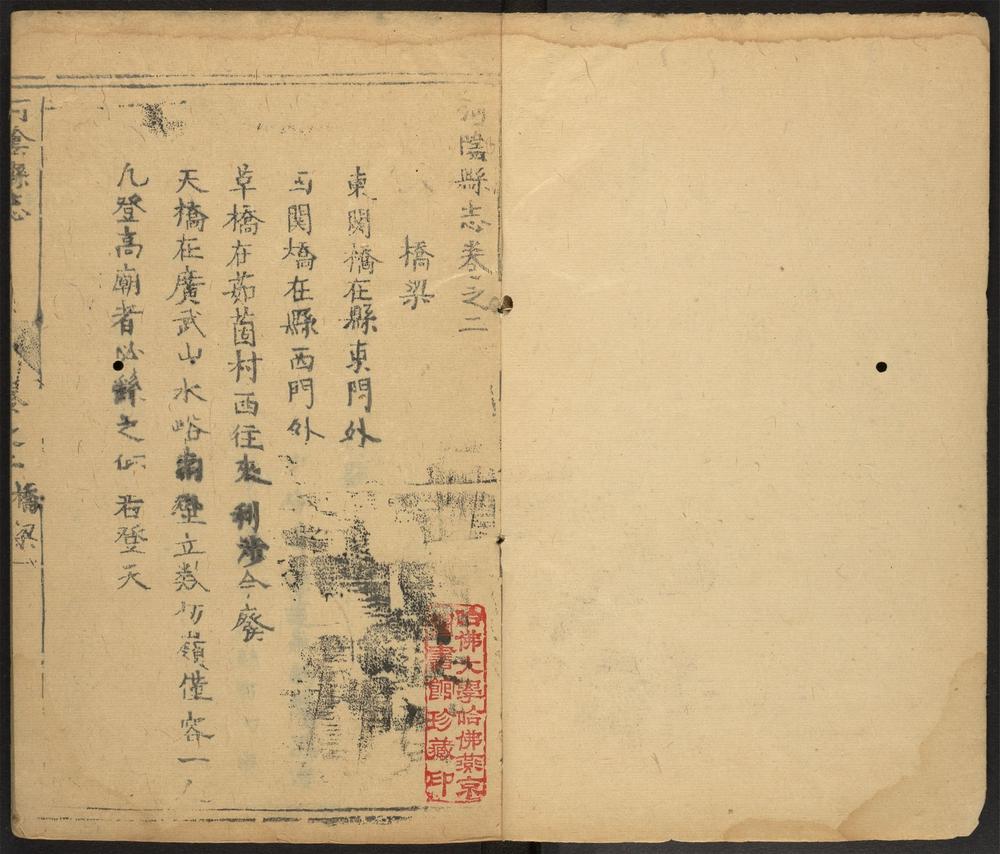 河陰縣志卷之二
橋梁
東関橋在縣東門外
西関橋在縣西門外
草橋在茹茵村西往來利涉今廢
天橋在廣武山水峪南壁立数仞嶺僅容一人
凢登高廟者必繇之如右登天
河陰縣志
卷之二
橋梁
一
哈佛大學哈佛燕京
圖書館珍藏印